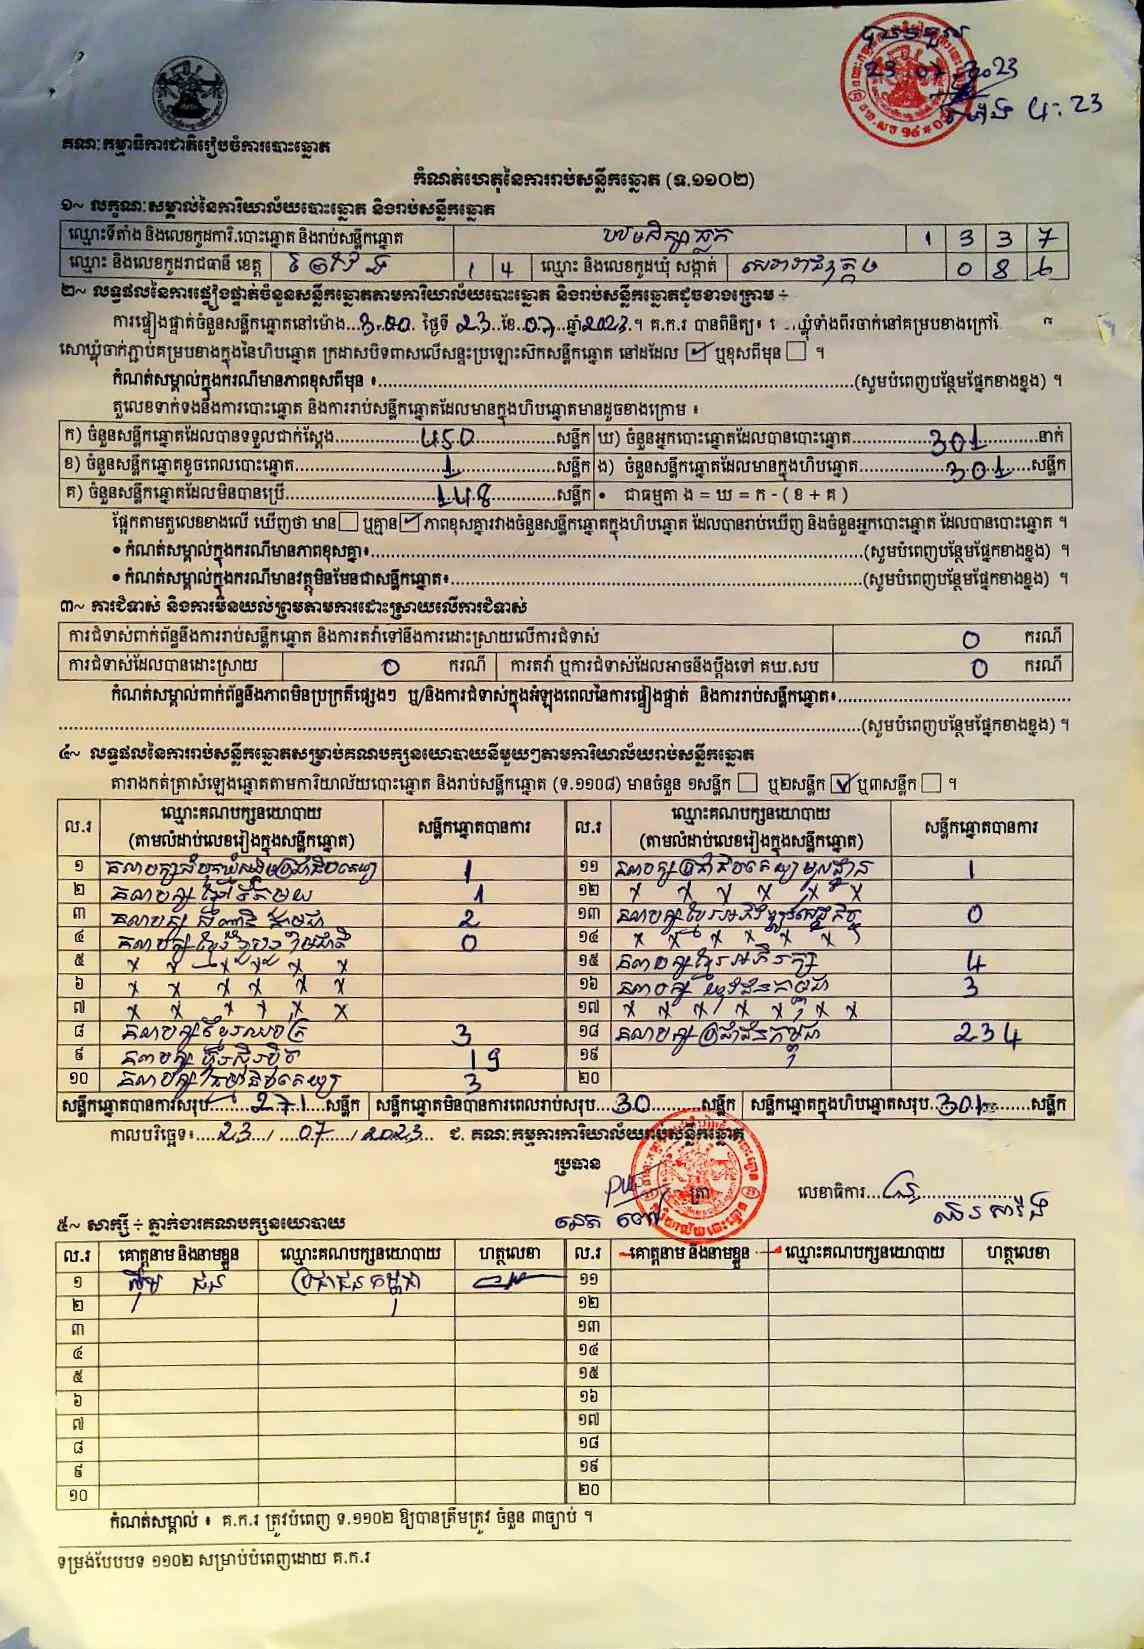 23 07 2023
4:23
គណៈកម្មាធិការជាតិរៀបចំការបោះឆ្នោត
កំណត់ហេតុនៃការរាប់សន្លឹកឆ្នោត (ទ.១១០២)
១~ លក្ខណៈសម្គាល់នៃការិយាល័យបោះឆ្នោត និងរាប់សន្លឹកឆ្នោត
ឈ្មោះទីតាំង និងលេខកូដការិ.បោះឆ្នោត និងរាប់សន្លឹកឆ្នោត 1 3 3 7
ឈ្មោះ និងលេខកូដរាជធានី ខេត្ត 1 4 ឈ្មោះ និងលេខកូដឃុំ សង្កាត់ 0 8 6
២~ លទ្ធផលនៃការផ្ទៀងផ្ទាត់ចំនួនសន្លឹកឆ្នោតតាមការិយាល័យបោះឆ្នោត និងរាប់សន្លឹកឆ្នោតដូចខាងក្រោម ÷
ការផ្ទៀងផ្ទាត់ចំនួនសន្លឹកឆ្នោតនៅម៉ោង...3:00. ថ្ងៃទី 23.ខែ.07..ឆ្នាំ2023.។ គ.ក.រ បានពិនិត្យ៖ ឃ្លុំទាំងពីរចាក់នៅគម្របខាងក្រៅ
សោឃ្លុំចាក់ភ្ជាប់គម្របខាងក្នុងនៃហិបឆ្នោត ក្រដាសបិទពាសលើសន្ទះប្រឡោះស៊កសន្លឹកឆ្នោត នៅដដែល ☑ ឬខុសពីមុន ☐ ។
កំណត់សម្គាល់ក្នុងករណីមានភាពខុសពីមុន ៖..........(សូមបំពេញបន្ថែមផ្នែកខាងខ្នង) ។
តួលេខទាក់ទងនឹងការបោះឆ្នោត និងការរាប់សន្លឹកឆ្នោតដែលមានក្នុងហិបឆ្នោតមានដូចខាងក្រោម ៖
ក) ចំនួនសន្លឹកឆ្នោតដែលបានទទួលជាក់ស្តែង......450......សន្លឹក ឃ) ចំនួនអ្នកបោះឆ្នោតដែលបានបោះឆ្នោត......301......នាក់
ខ) ចំនួនសន្លឹកឆ្នោតខូចពេលបោះឆ្នោត......1......សន្លឹក ង) ចំនួនសន្លឹកឆ្នោតដែលមានក្នុងហិបឆ្នោត......301......សន្លឹក
គ) ចំនួនសន្លឹកឆ្នោតដែលមិនបានប្រើ......148......សន្លឹក • ជាធម្មតា ង = ឃ = ក - ( ខ + គ )
ផ្អែកតាមតួលេខខាងលើ ឃើញថា មាន☐ ឬគ្មាន☑ ភាពខុសគ្នារវាងចំនួនសន្លឹកឆ្នោតក្នុងហិបឆ្នោត ដែលបានរាប់ឃើញ និងចំនួនអ្នកបោះឆ្នោត ដែលបានបោះឆ្នោត ។
• កំណត់សម្គាល់ក្នុងករណីមានភាពខុសគ្នា៖..........(សូមបំពេញបន្ថែមផ្នែកខាងខ្នង) ។
• កំណត់សម្គាល់ក្នុងករណីមានវត្ថុមិនមែនជាសន្លឹកឆ្នោត៖..........(សូមបំពេញបន្ថែមផ្នែកខាងខ្នង) ។
៣~ ការជំទាស់ និងការមិនយល់ព្រមតាមការដោះស្រាយលើការជំទាស់
ការជំទាស់ពាក់ព័ន្ធនឹងការរាប់សន្លឹកឆ្នោត និងការតវ៉ាទៅនឹងការដោះស្រាយលើការជំទាស់ 0 ករណី
ការជំទាស់ដែលបានដោះស្រាយ 0 ករណី ការតវ៉ា ឬការជំទាស់ដែលអាចនឹងប្តឹងទៅ គឃ.សប 0 ករណី
កំណត់សម្គាល់ពាក់ព័ន្ធនឹងភាពមិនប្រក្រតីផ្សេងៗ ឬ/និងការជំទាស់ក្នុងអំឡុងពេលនៃការផ្ទៀងផ្ទាត់ និងការរាប់សន្លឹកឆ្នោត៖..........
..........(សូមបំពេញបន្ថែមផ្នែកខាងខ្នង) ។
៤~ លទ្ធផលនៃការរាប់សន្លឹកឆ្នោតសម្រាប់គណបក្សនយោបាយនីមួយៗតាមការិយាល័យរាប់សន្លឹកឆ្នោត
តារាងកត់ត្រាសំឡេងឆ្នោតតាមការិយាល័យបោះឆ្នោត និងរាប់សន្លឹកឆ្នោត (ទ.១១០៨) មានចំនួន ១សន្លឹក ☐ ឬ២សន្លឹក ☑ ឬ៣សន្លឹក ☐ ។
ល.រ ឈ្មោះគណបក្សនយោបាយ (តាមលំដាប់លេខរៀងក្នុងសន្លឹកឆ្នោត) សន្លឹកឆ្នោតបានការ ល.រ ឈ្មោះគណបក្សនយោបាយ (តាមលំដាប់លេខរៀងក្នុងសន្លឹកឆ្នោត) សន្លឹកឆ្នោតបានការ
១ គណបក្សសំបុកឃ្មុំសង្គមប្រជាធិបតេយ្យ 1 ១១ គណបក្សប្រជាធិបតេយ្យមូលដ្ឋាន 1
២ គណបក្ស 1 ១២ x x x x x x
៣ គណបក្ស 2 ១៣ គណបក្ស 0
៤ គណបក្ស 0 ១៤ x x x x x x
៥ x x x x x x ១៥ គណបក្សខ្មែរអភិរក្ស 4
៦ x x x x x x ១៦ គណបក្ស 3
៧ x x x x x ១៧ x x x x x x
៨ គណបក្ស 3 ១៨ គណបក្សប្រជាជនកម្ពុជា 234
៩ គណបក្សហ៊្វុនស៊ិនប៉ិច 19 ១៩
១០ គណបក្ស 3 ២០
សន្លឹកឆ្នោតបានការសរុប......271....សន្លឹក សន្លឹកឆ្នោតមិនបានការពេលរាប់សរុប...30......សន្លឹក សន្លឹកឆ្នោតក្នុងហិបឆ្នោតសរុប..301......សន្លឹក
កាលបរិច្ឆេទ៖....23.../ ....07..../ 2023.. ជ. គណៈកម្មការការិយាល័យរាប់សន្លឹកឆ្នោត
ប្រធាន
ត្រា លេខាធិការ..........
៥~ សាក្សី ÷ ភ្នាក់ងារគណបក្សនយោបាយ
ល.រ គោត្តនាម និងនាមខ្លួន ឈ្មោះគណបក្សនយោបាយ ហត្ថលេខា ល.រ គោត្តនាម និងនាមខ្លួន ឈ្មោះគណបក្សនយោបាយ ហត្ថលេខា
១ ប្រជាជនកម្ពុជា ១១
២ ១២
៣ ១៣
៤ ១៤
៥ ១៥
៦ ១៦
៧ ១៧
៨ ១៨
៩ ១៩
១០ ២០
កំណត់សម្គាល់ ៖ គ.ក.រ ត្រូវបំពេញ ទ.១១០២ ឱ្យបានត្រឹមត្រូវ ចំនួន ៣ច្បាប់ ។
ទម្រង់បែបបទ ១១០២ សម្រាប់បំពេញដោយ គ.ក.រ